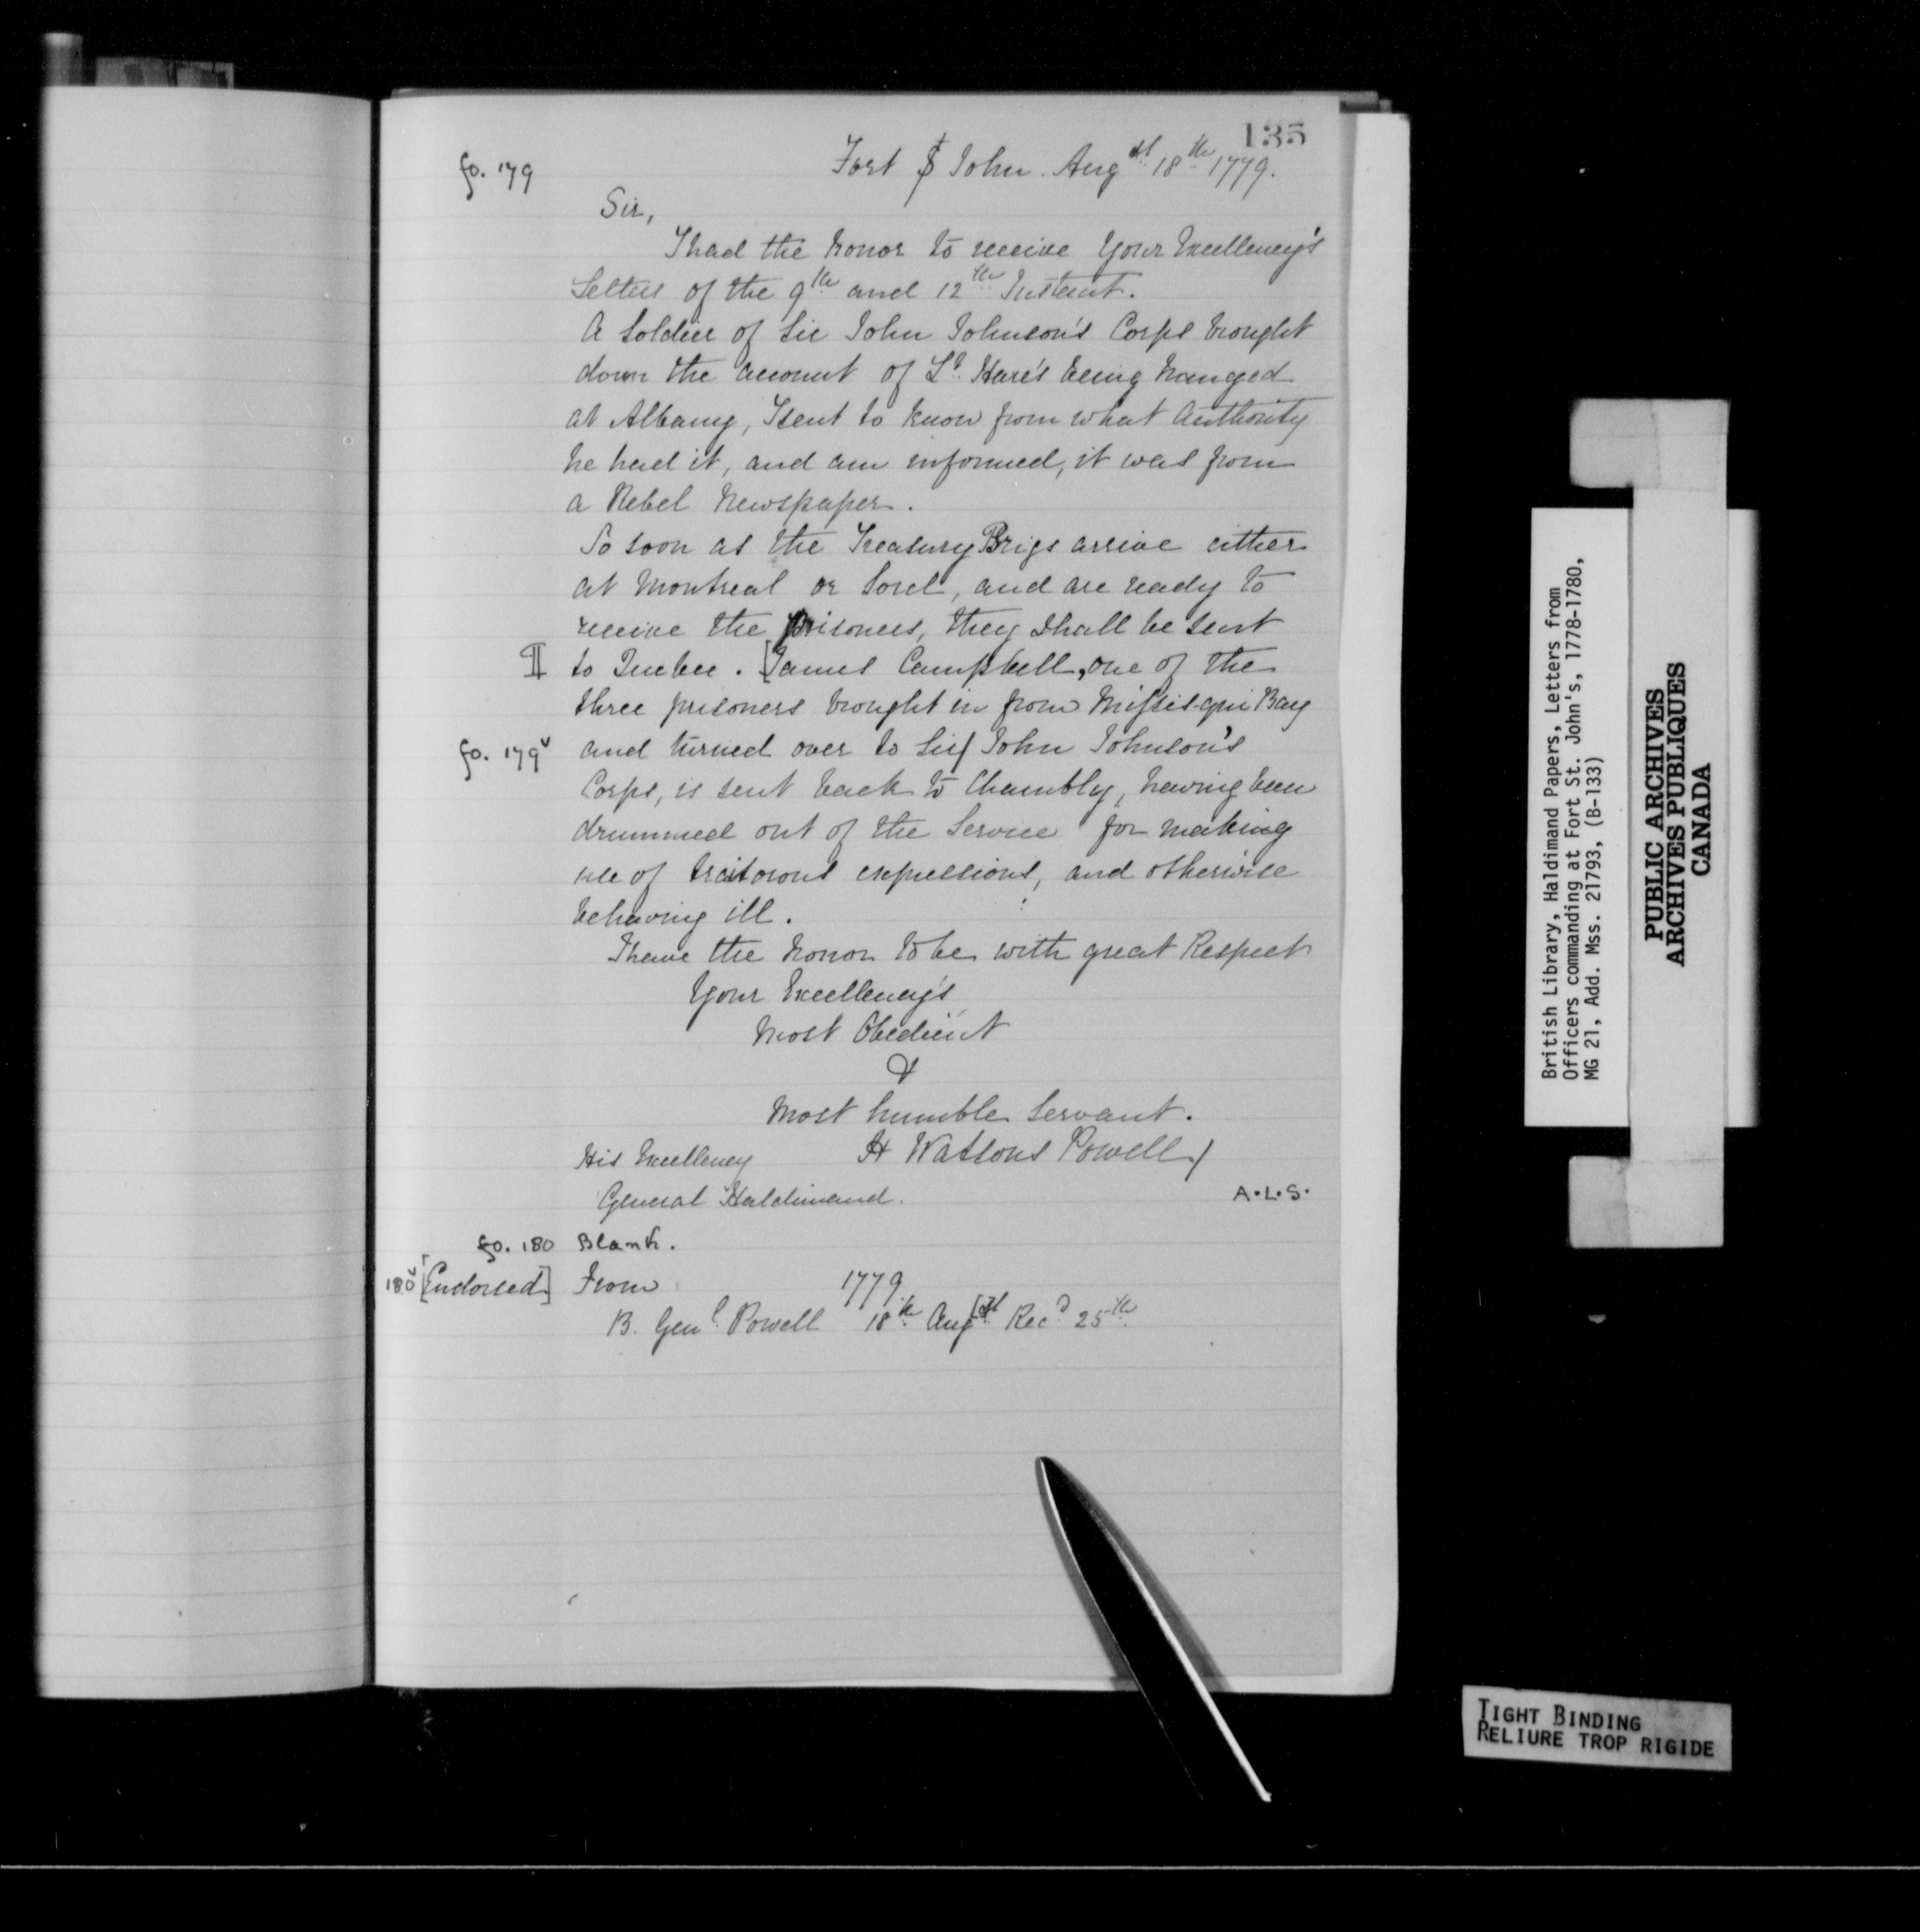 135
fo. 179
Fort St John. Augst 18th 1779.
Sir,
I had the honor to receive Your Excellency's
Letters of the 9th and 12th Instant.
A Soldier of Sir John Johnson's Corps brought
down the account of Lt. Hare's being hanged
at Albany, I sent to know from what Authority
he had it, and am informed, it was from
a Rebel Newspaper.
So soon as the Treasury Brigs arrive either
at Montreal or Sorel, and are ready to
receive the prisoners, they shall be sent
¶ to Quebec. [James Campbell, one of the
three prisoners brought in from Missisqui Bay
fo. 179v and turned over to Sir/ John Johnson's
Corps, is sent back to Chambly, having been
drummed out of the Service for making
use of traitorous expressions, and otherwise
behaving ill.
I have the honor to be with great Respect
Your Excellency's
Most Obedient
&
Most humble Servant.
H Watsons Powell/
His Excellency
General Haldimand.
A.L.S.
fo. 180 Blank.
180v [Endorsed] From 1779
B. Genl. Powell 18th Aug[st] Recd 25th
British Library, Haldimand Papers, Letters from
Officers commanding at Fort St. John's, 1778-1780,
MG 21, Add. Mss. 21793, (B-133)
PUBLIC ARCHIVES
ARCHIVES PUBLIQUES
CANADA
TIGHT BINDING
RELIURE TROP RIGIDE